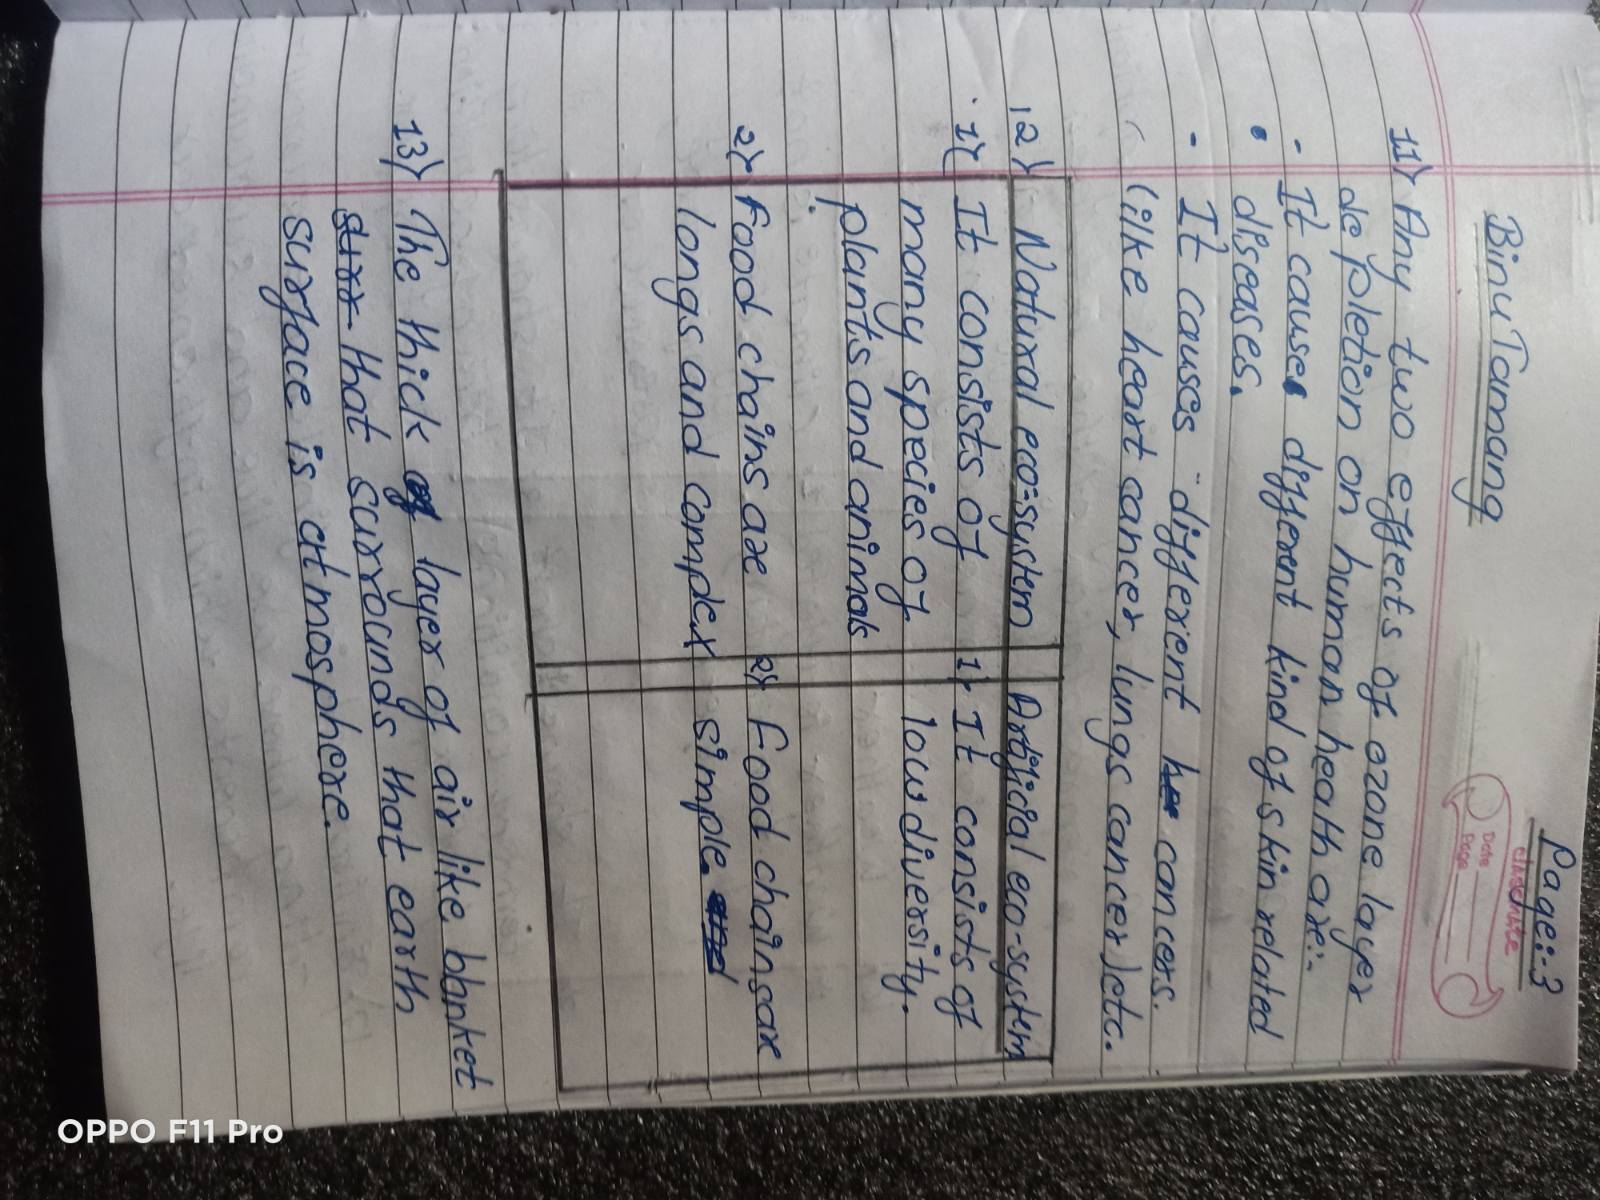 Page:-3
classmate
Date
Page
Binu Tamang
11) Any two effects of ozone layer
depletion on human health are:-
- It cause different kind of skin related
diseases.
- It causes different cancers.
(like heart cancer, lungs cancer) etc.
12) Natural eco-system
Artificial eco-system
1) It consists of
many species of
plants and animals
1) It consists of
low diversity.
2) Food chains are
longs and complex
2) Food chains are
simple.
13) The thick layer of air like blanket
that surrounds that earth
surface is atmosphere.
OPPO F11 Pro